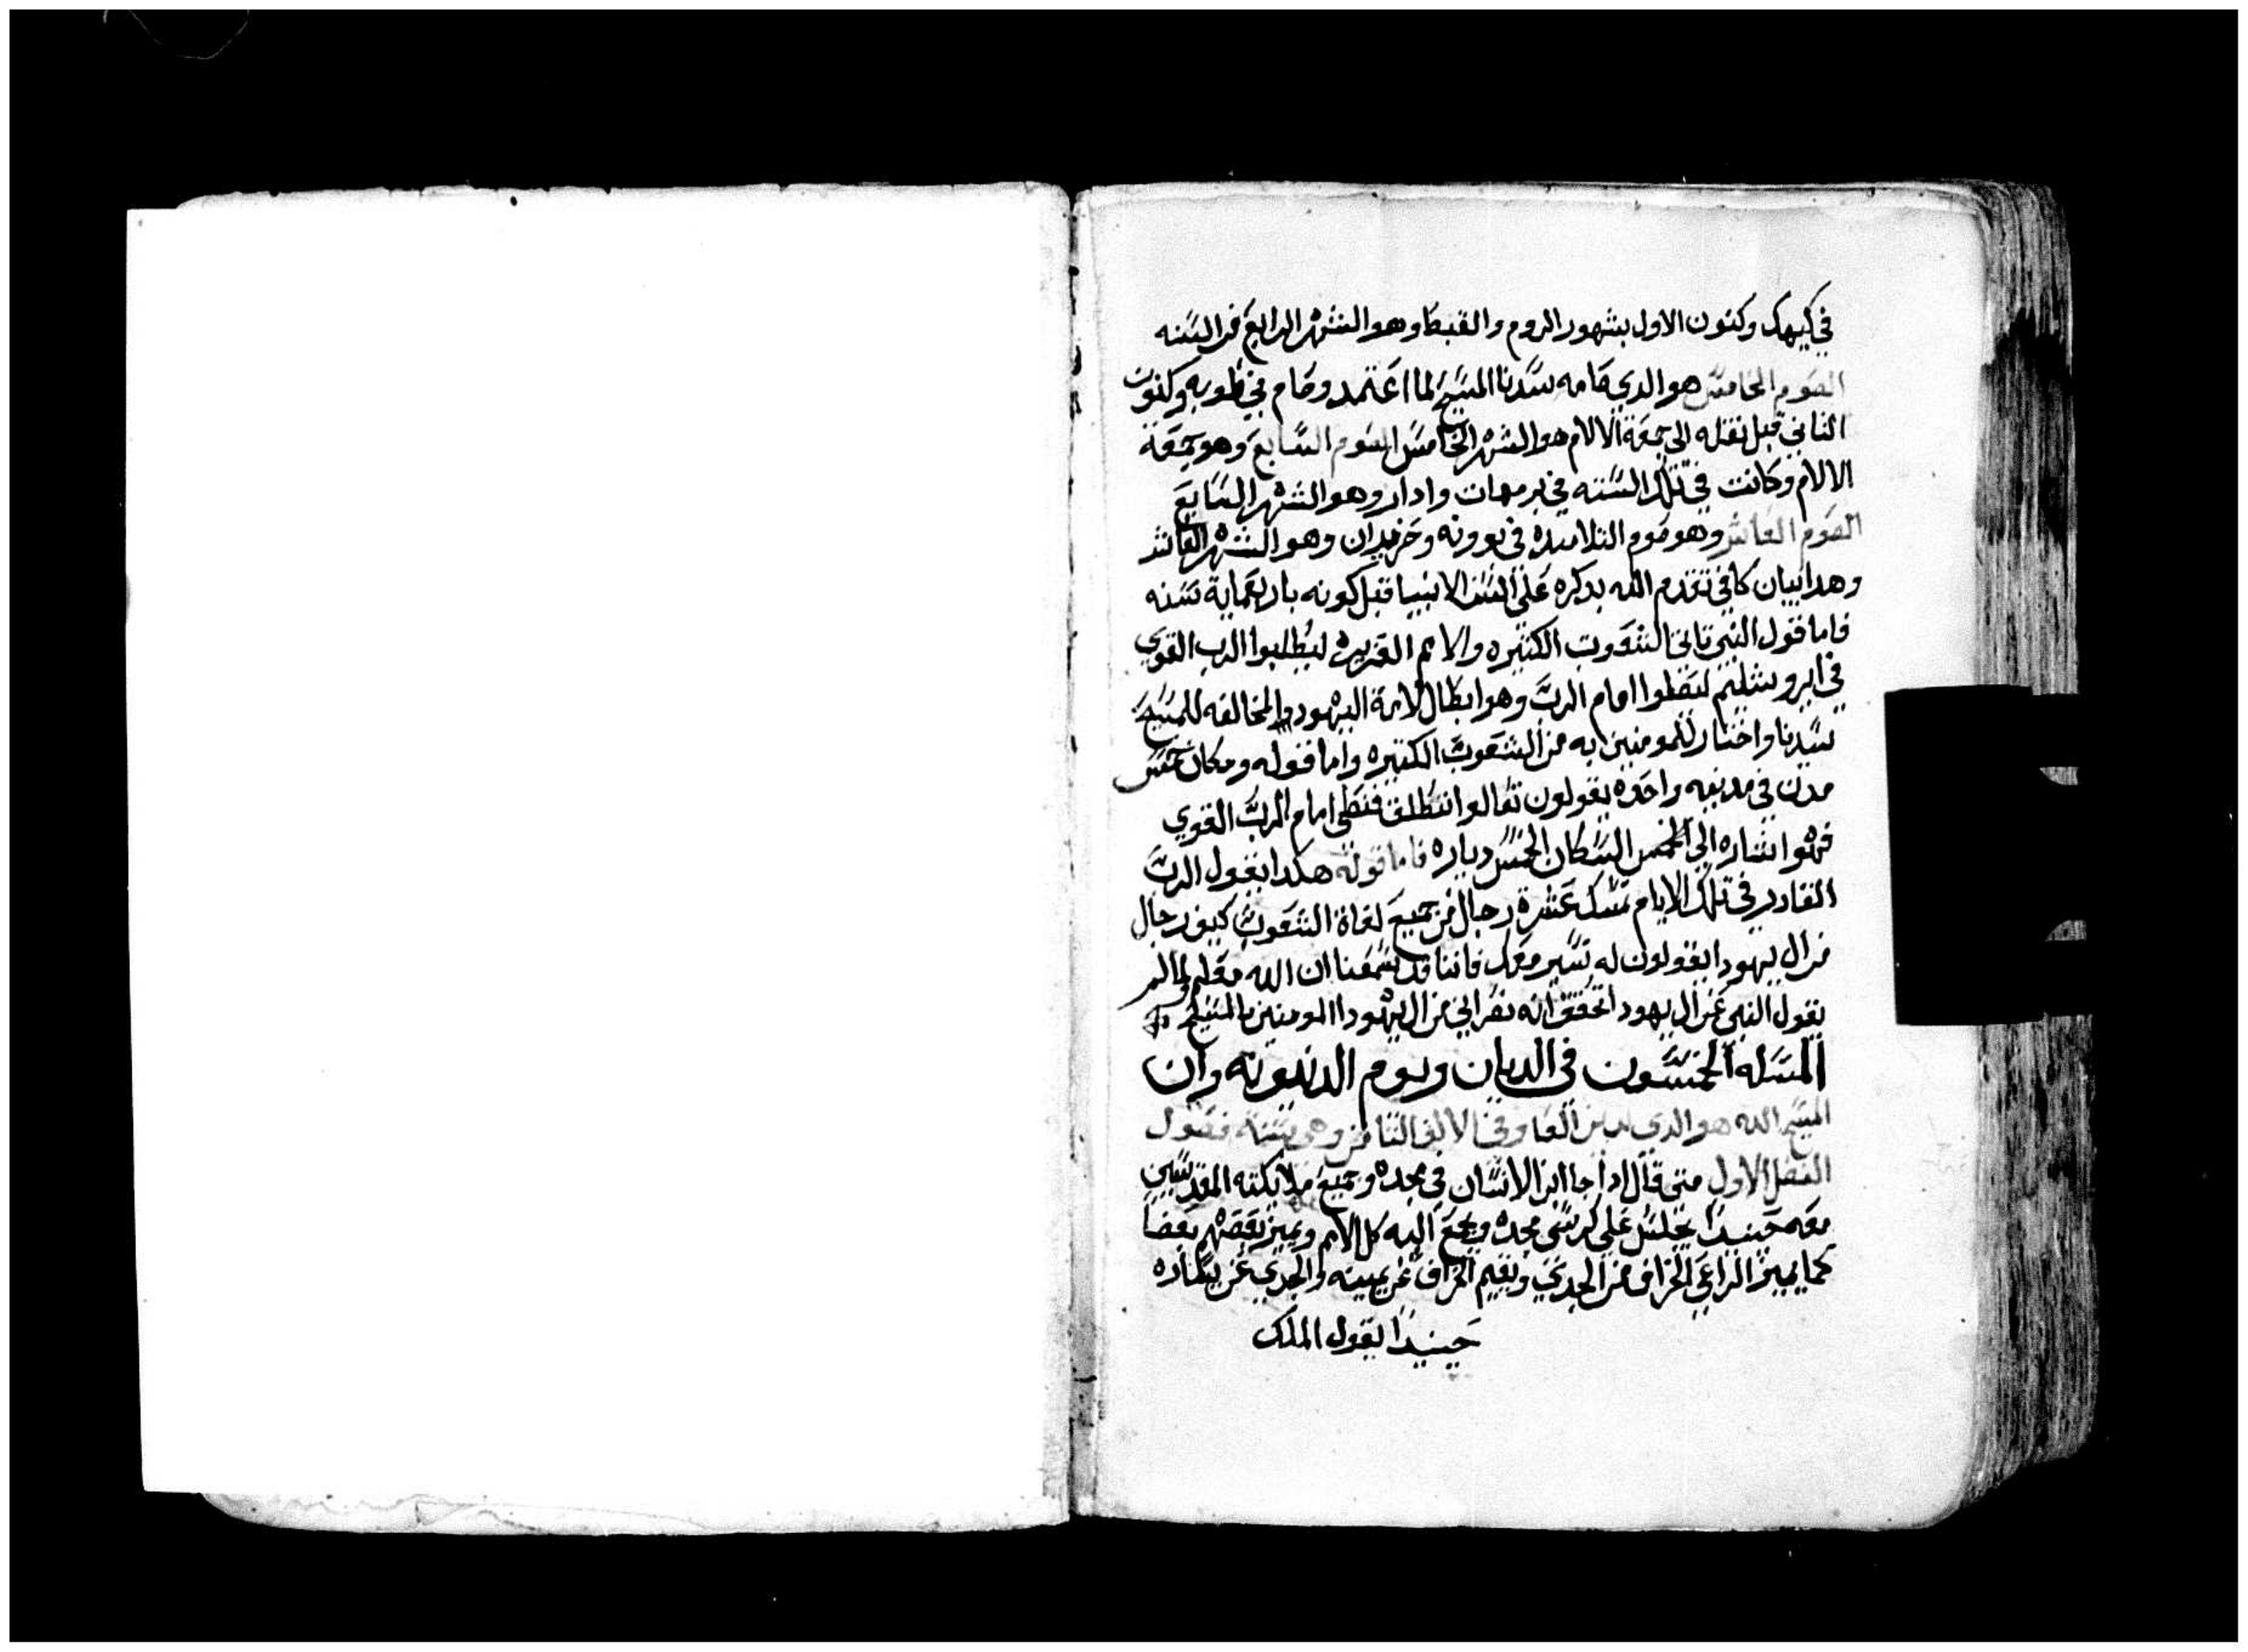 في كيهك وكنون الاول بشهور الروم والقبط وهو الشهر الرابع من السنه
الصوم الخامس هو الدي صامه سيدنا المسيح لما اعتمد وصام في طوبه وكنون
الثاني قبل نقله الي جمعة الالام هو الشهر الخامس الصوم السابع وهو جمعة
الالام وكانت في تلك السنه في برمهات وادار وهو الشهر السابع
الصوم العاشر وهو صوم التلاميده في بوونه وحزيران وهو الشهر العاشر
وهدا بيان كافي تقدم الله بدكره علي السن الانبيا قبل كونه باربعماية سنه
فاما قول النبي تاتي الشعوب الكثيره والامم الغزيره ليطلبوا الرب القوي
في ايروشليم ليصلوا امام الرب وهو ابطال لامة اليهود المخالفه للمسيح
سيدنا واختار للمومنين به من الشعوب الكثيره واما قوله وسكان خمس
مدن في مدينه واحده يقولون تعالوا ننطلق فنصلي امام الرب القوي
فهو اشاره الي الخمس السكان الخمس دياره فاما قوله هكدا يقول الرب
القادر في تلك الايام تمسك عشرة رجال من جميع لغاة الشعوب كييف رجال
من ال يهودا يقولون له نسير معك فاننا قد سمعنا ان الله معكم ولما لم
يقول النبي عن ال يهودا تحقق انه نصراني من ال يهودا المومنين بالمسيح
المسله الخمسون في الديان ويوم الدينونه وان
المسيح الله هو الدي يدين العا وفي الالف الثامن وهي سته فصول
الفصل الاول متي قال ادا جا ابن الانسان في مجده وجميع ملايكته المقدسين
معه حينيدا يجلس علي كرسي مجده ويجمع اليه كل الامم ويميز بعضهم بعضا
كما يميز الراعي الخراف من الجدي ويقيم الخراف عن يمينه والجدي عن يساره
حينيدا يقول الملك